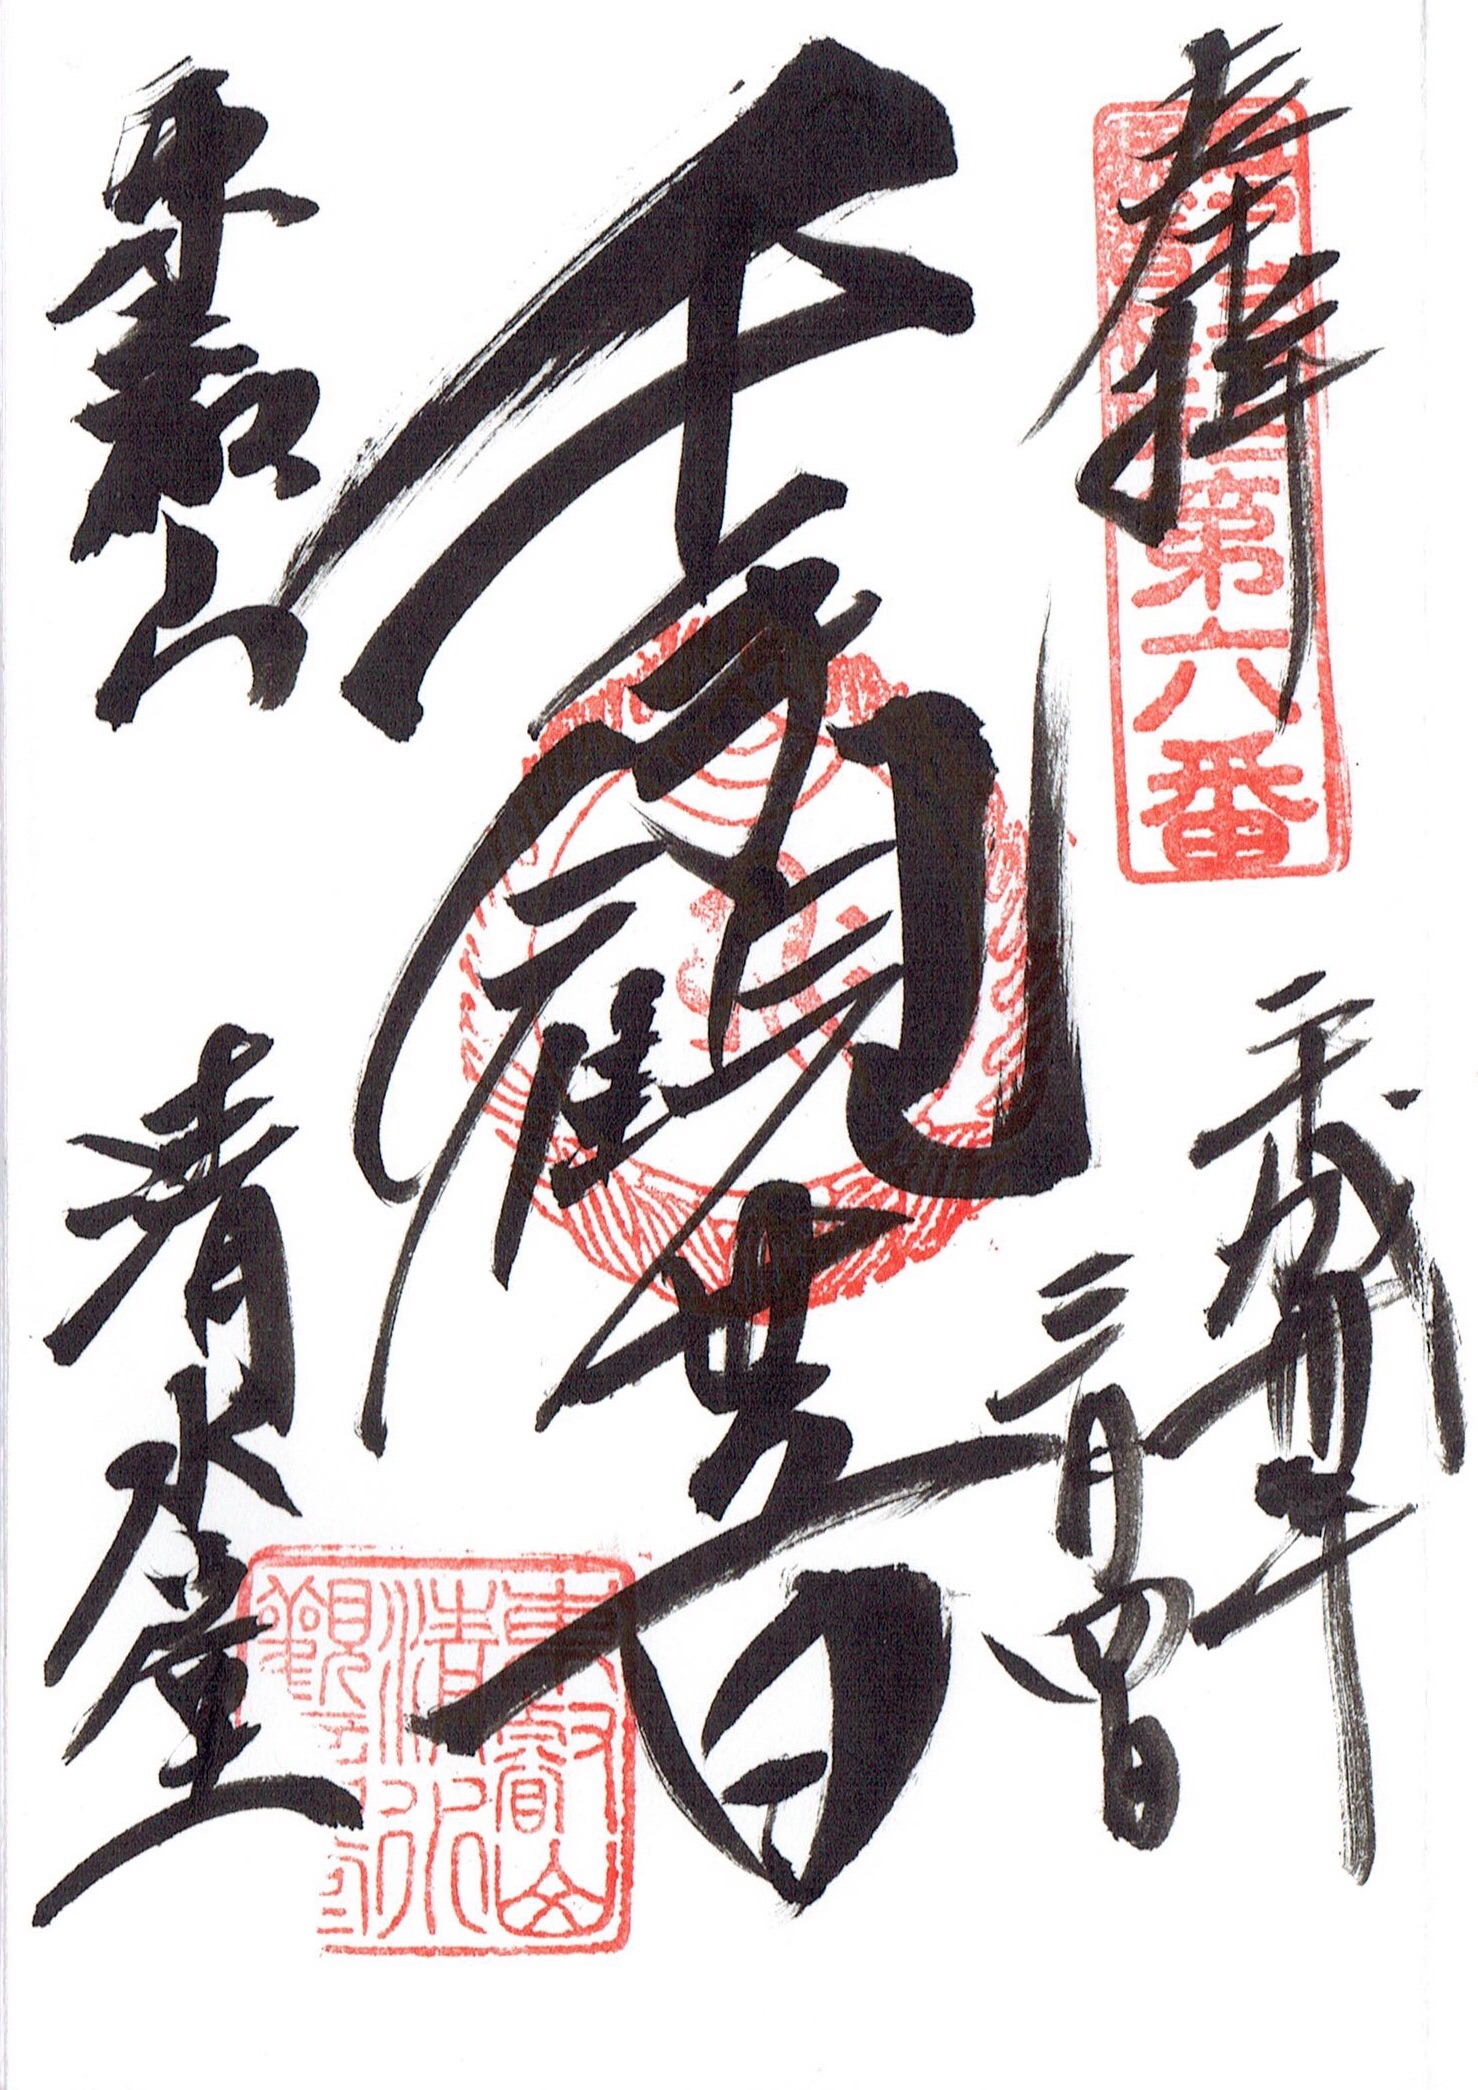 奉拝
第六番
平成卅年
三月四日
千手観世音
東叡山
清水堂
東叡山
清水